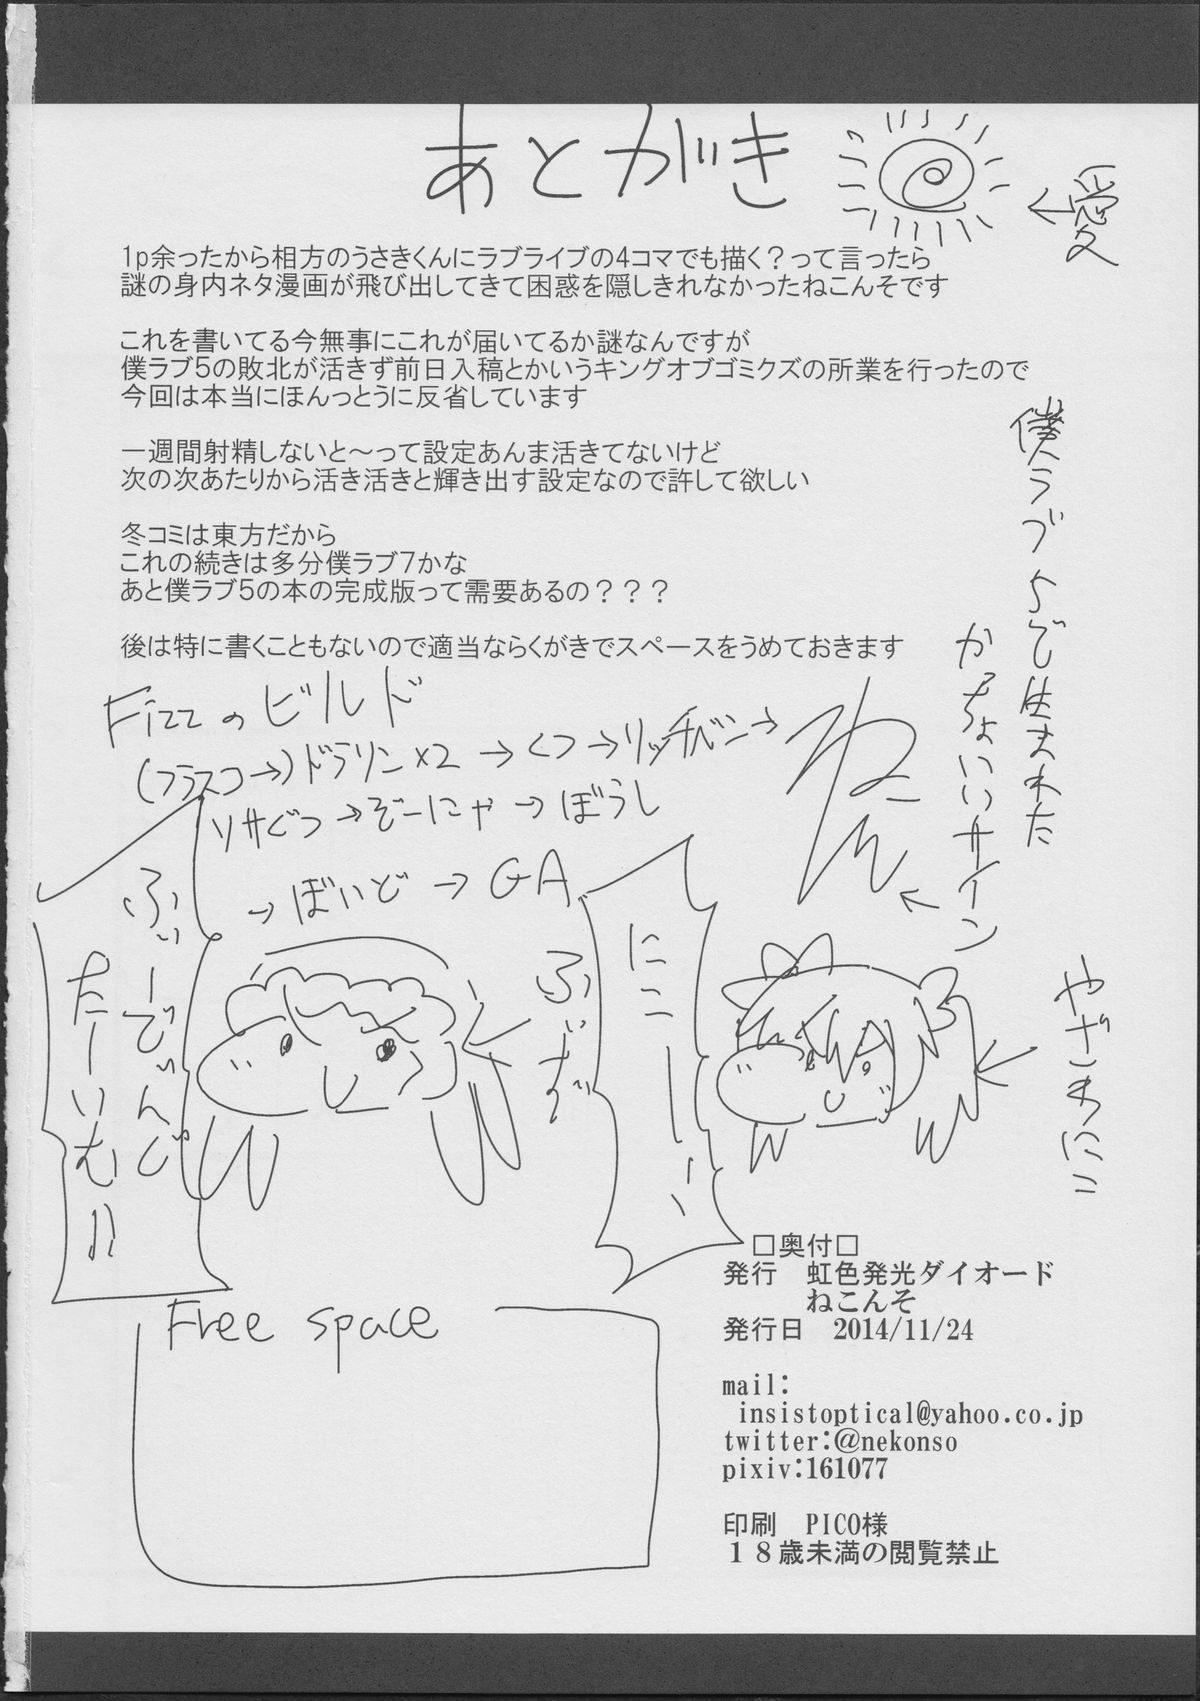 あとがき
←愛
1p余ったから相方のうさきくんにラブライブの4コマでも描く？って言ったら
謎の身内ネタ漫画が飛び出してきて困惑を隠しきれなかったねこんそです
これを書いてる今無事にこれが届いてるか謎なんですが
僕ラブ5の敗北が活きず前日入稿とかいうキングオブゴミクズの所業を行ったので
今回は本当にほんっとうに反省しています
一週間射精しないと～って設定あんま活きてないけど
次の次あたりから活き活きと輝き出す設定なので許して欲しい
冬コミは東方だから
これの続きは多分僕ラブ7かな
あと僕ラブ5の本の完成版って需要あるの？？？
後は特に書くこともないので適当ならくがきでスペースをうめておきます
僕ラブ5で生まれた
かっちょいいサイン
ねん
←
Fizzのビルド
(フラスコ→)ドラリン×2→くつ→リッチベン→
ソサぐつ→ぞーにゃ→ぼうし
→ぼいど→GA
やざわにこ
にこーーっ
ふぃず
ふぃーでぃんど
たーいむ!!
Free space
□奥付□
発行　虹色発光ダイオード
ねこんそ
発行日　2014/11/24
mail:
insistoptical@yahoo.co.jp
twitter:@nekonso
pixiv:161077
印刷　PICO様
１８歳未満の閲覧禁止